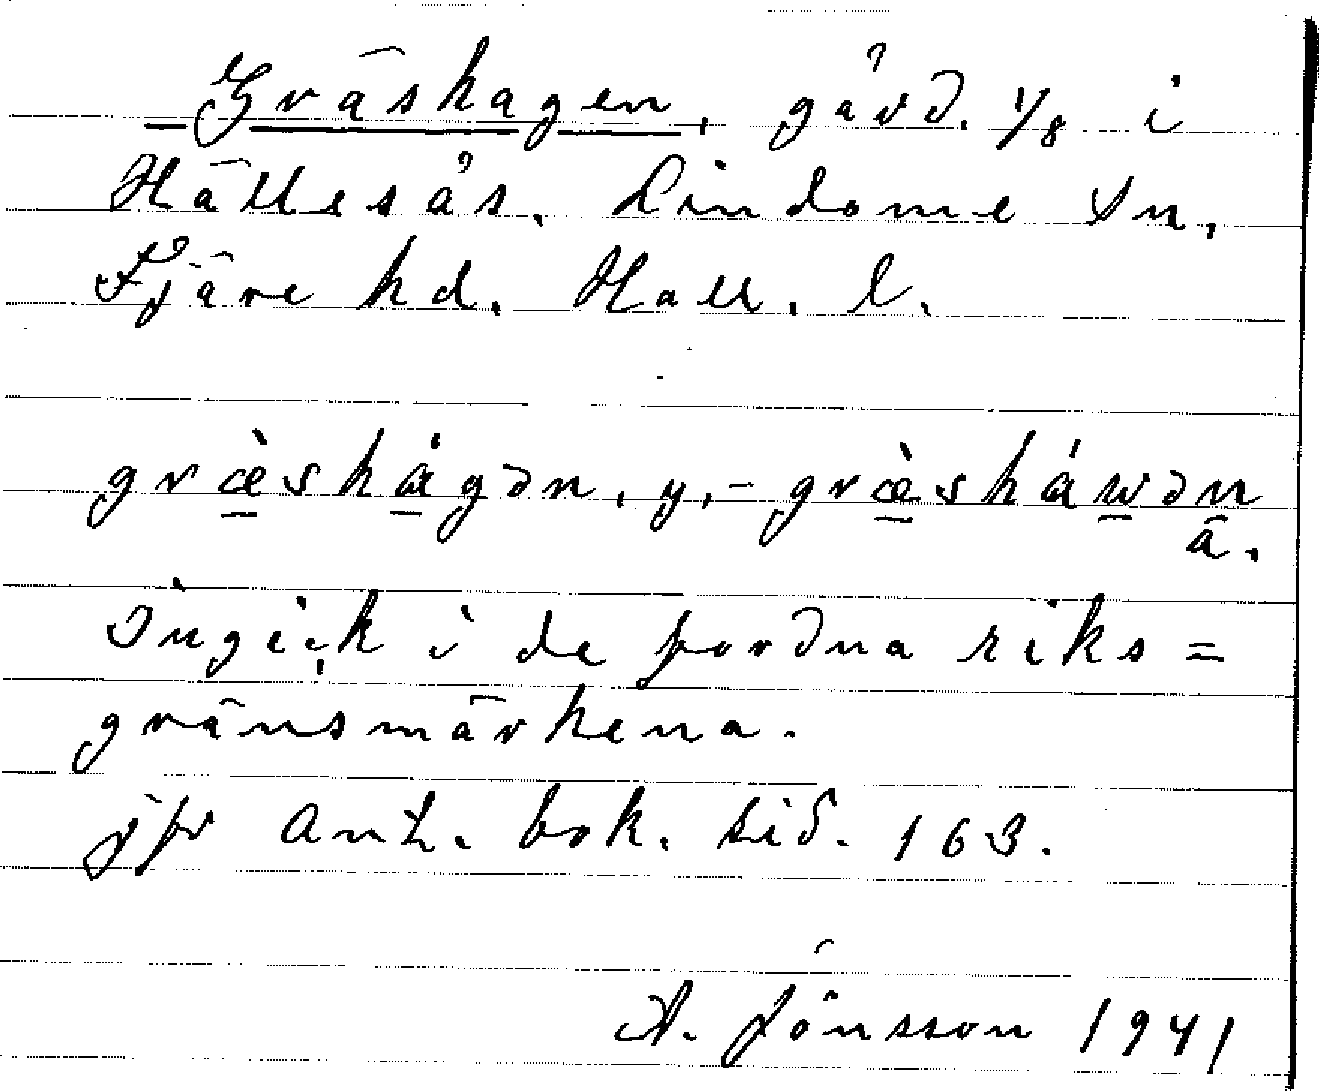 Gräshagen, gård. 1/8 i
Hällesås. Lindome sn,
Fjäre hd. Hall. l.
græ̀shágən, y,- græ̀sháwən
ä.
Ingick i de fordna riks=
gränsmärkena.
jfr Ant. bok. sid. 163.
A. Jönsson 1941